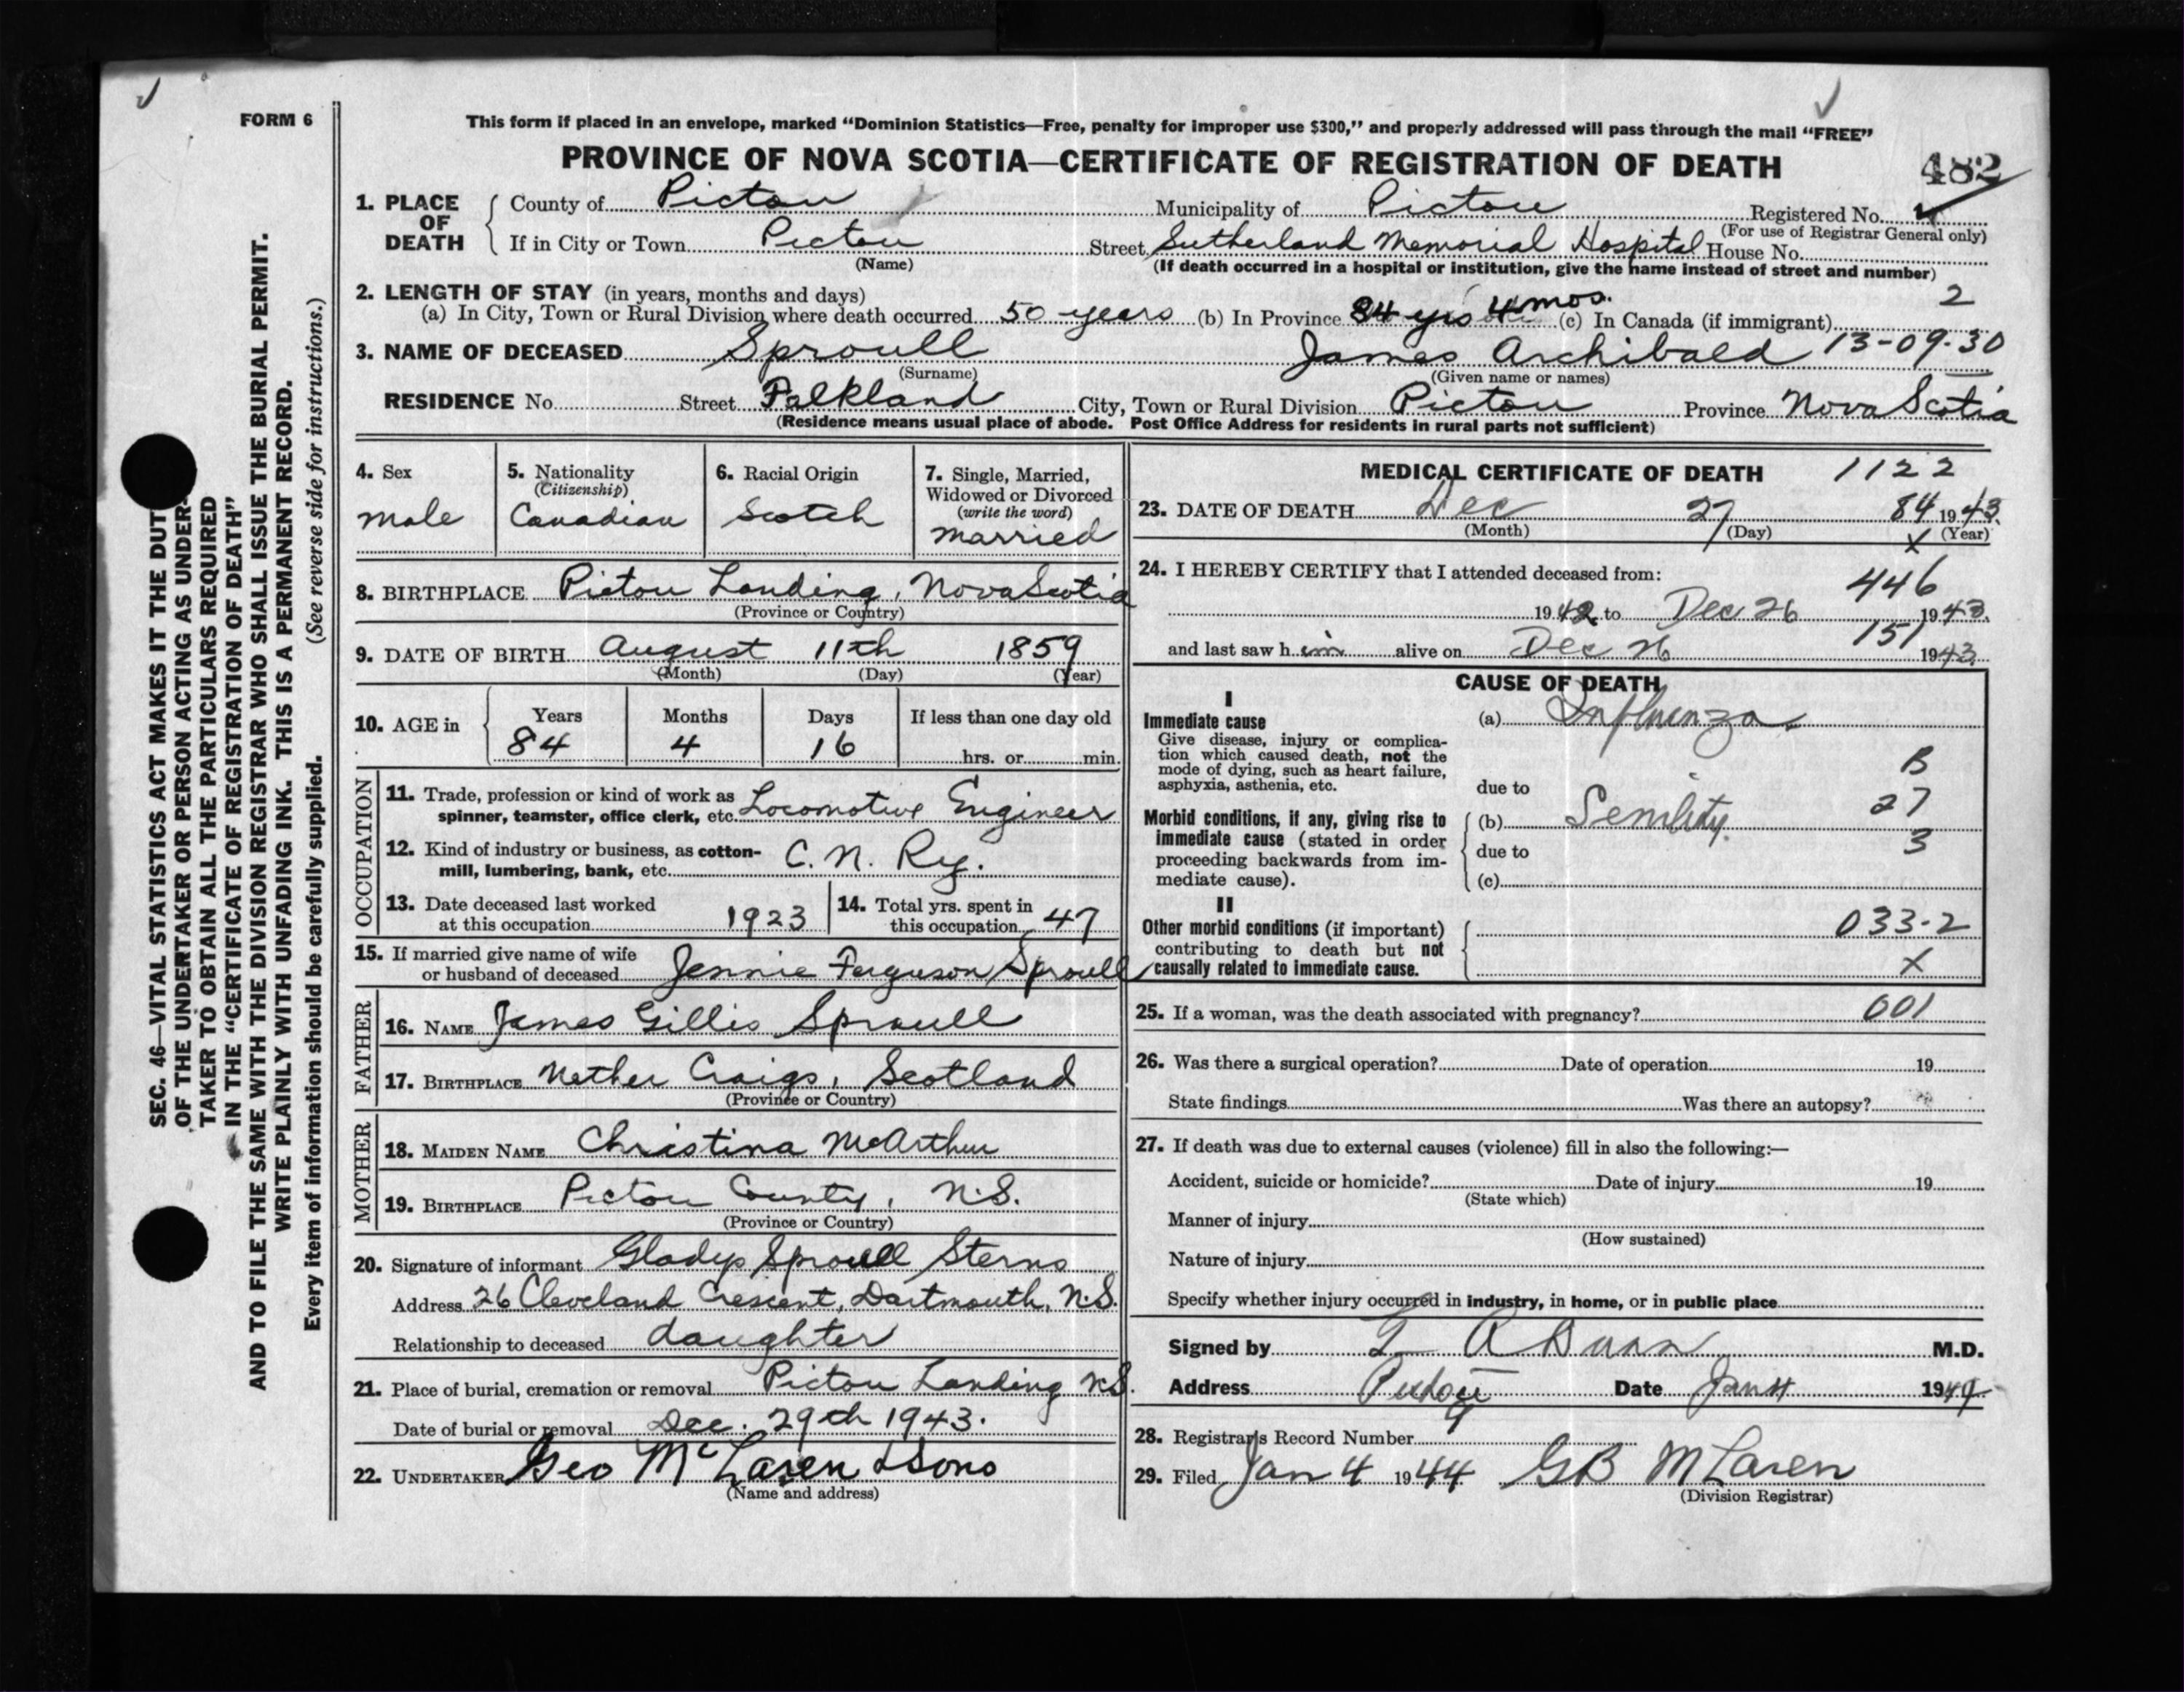 FORM 6
This form if placed in an envelope, marked "Dominion Statistics—Free, penalty for improper use $300," and properly addressed will pass through the mail "FREE"
PROVINCE OF NOVA SCOTIA—CERTIFICATE OF REGISTRATION OF DEATH
482
1. PLACE OF DEATH
County of Pictou Municipality of Pictou Registered No.
(For use of Registrar General only)
If in City or Town Pictou Street Sutherland Memorial Hospital House No.
(Name) (If death occurred in a hospital or institution, give the name instead of street and number)
2. LENGTH OF STAY (in years, months and days) 2
(a) In City, Town or Rural Division where death occurred 50 years (b) In Province 84 yrs 4 mos. (c) In Canada (if immigrant)
3. NAME OF DECEASED Sproull James Archibald 13-09-30
(Surname) (Given name or names)
RESIDENCE No. Street Falkland City, Town or Rural Division Pictou Province Nova Scotia
(Residence means usual place of abode. Post Office Address for residents in rural parts not sufficient)
4. Sex
male
5. Nationality
(Citizenship)
Canadian
6. Racial Origin
Scotch
7. Single, Married,
Widowed or Divorced
(write the word)
married
8. BIRTHPLACE Pictou Landing, Nova Scotia
(Province or Country)
9. DATE OF BIRTH August 11th 1859
(Month) (Day) (Year)
10. AGE in
Years Months Days If less than one day old
84 4 16 hrs. or min.
OCCUPATION
11. Trade, profession or kind of work as
spinner, teamster, office clerk, etc. Locomotive Engineer
12. Kind of industry or business, as cotton-
mill, lumbering, bank, etc. C. N. Ry.
13. Date deceased last worked
at this occupation 1923
14. Total yrs. spent in
this occupation 47
15. If married give name of wife
or husband of deceased Jennie Ferguson Sproull
FATHER
16. NAME James Gillis Sproull
17. BIRTHPLACE Nether Craigs, Scotland
(Province or Country)
MOTHER
18. MAIDEN NAME Christina McArthur
19. BIRTHPLACE Pictou County, N.S.
(Province or Country)
20. Signature of informant Gladys Sproull Sterns
Address 26 Cleveland Crescent, Dartmouth, N.S.
Relationship to deceased daughter
21. Place of burial, cremation or removal Pictou Landing N.S.
Date of burial or removal Dec. 29th 1943.
22. UNDERTAKER Geo McLaren & Sons
(Name and address)
MEDICAL CERTIFICATE OF DEATH 1122
23. DATE OF DEATH Dec 27 84 1943.
(Month) (Day) X (Year)
24. I HEREBY CERTIFY that I attended deceased from: 446
1942 to Dec 26 1943.
151
and last saw him alive on Dec 26 1943.
CAUSE OF DEATH
I
Immediate cause
Give disease, injury or complica-
tion which caused death, not the
mode of dying, such as heart failure,
asphyxia, asthenia, etc.
(a) Influenza
B
due to
27
Morbid conditions, if any, giving rise to
immediate cause (stated in order
proceeding backwards from im-
mediate cause).
(b) Senility.
due to 3
(c)
II
Other morbid conditions (if important)
contributing to death but not
causally related to immediate cause.
033-2
X
25. If a woman, was the death associated with pregnancy? 001
26. Was there a surgical operation? Date of operation 19
State findings Was there an autopsy?
27. If death was due to external causes (violence) fill in also the following:—
Accident, suicide or homicide? Date of injury 19
(State which)
Manner of injury
(How sustained)
Nature of injury
Specify whether injury occurred in industry, in home, or in public place
Signed by M.D.
Address Pictou Date Jan 4 1944
28. Registrar's Record Number 9
29. Filed Jan 4 1944 GB McLaren
(Division Registrar)
SEC. 46—VITAL STATISTICS ACT MAKES IT THE DUTY
OF THE UNDERTAKER OR PERSON ACTING AS UNDER-
TAKER TO OBTAIN ALL THE PARTICULARS REQUIRED
IN THE "CERTIFICATE OF REGISTRATION OF DEATH"
AND TO FILE THE SAME WITH THE DIVISION REGISTRAR WHO SHALL ISSUE THE BURIAL PERMIT.
WRITE PLAINLY WITH UNFADING INK. THIS IS A PERMANENT RECORD.
Every item of information should be carefully supplied. (See reverse side for instructions.)